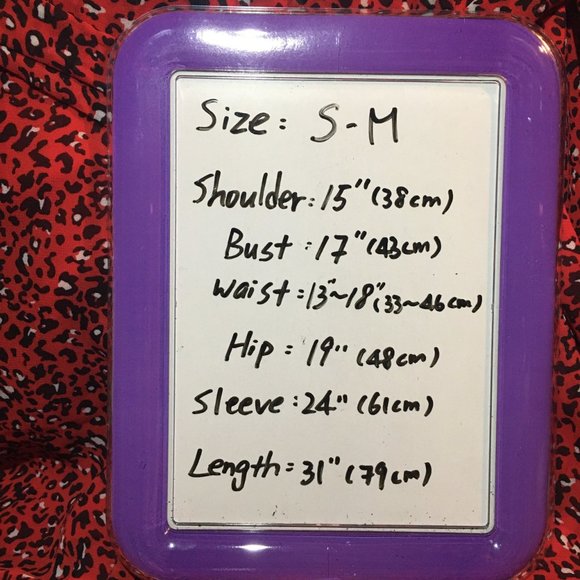 Size: S-M
Shoulder: 15" (38cm)
Bust: 17" (43cm)
Waist: 13"~18" (33~46cm)
Hip: 19" (48cm)
Sleeve: 24" (61cm)
Length: 31" (79cm)